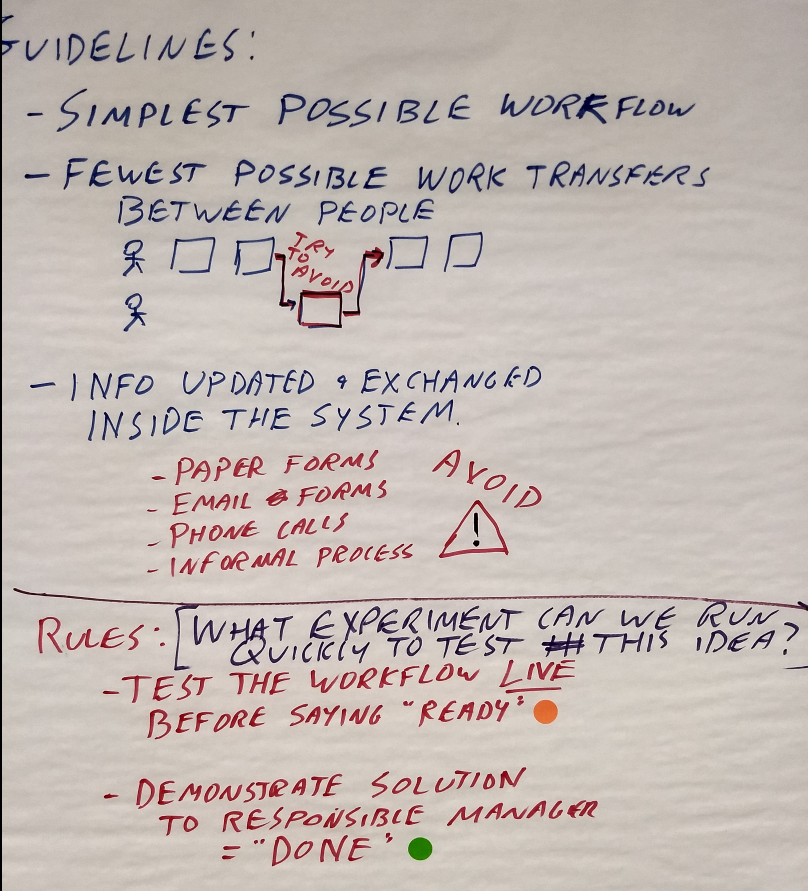 GUIDELINES:
- SIMPLEST POSSIBLE WORKFLOW
- FEWEST POSSIBLE WORK TRANSFERS
BETWEEN PEOPLE
TRY
TO
AVOID
- INFO UPDATED & EXCHANGED
INSIDE THE SYSTEM.
- PAPER FORMS
- EMAIL FORMS
- PHONE CALLS
- INFORMAL PROCESS
AVOID
!
RULES: [WHAT EXPERIMENT CAN WE RUN
QUICKLY TO TEST THIS IDEA?
- TEST THE WORKFLOW LIVE
BEFORE SAYING "READY"
- DEMONSTRATE SOLUTION
TO RESPONSIBLE MANAGER
= "DONE"